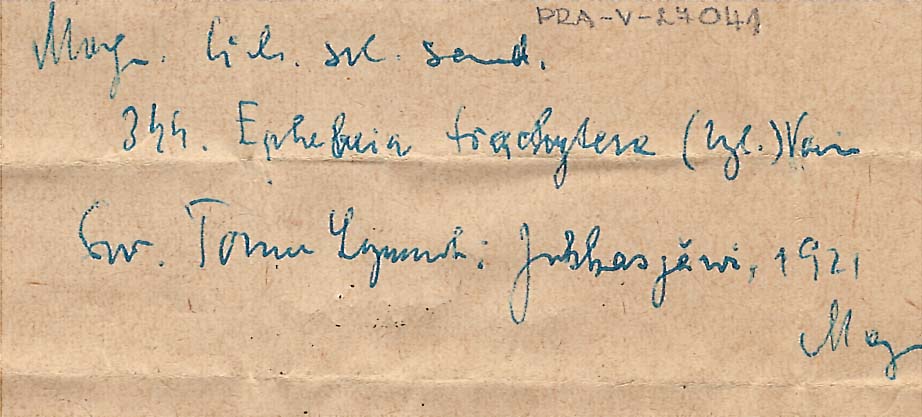 PRA-V-27041
Magn. Lich. sel. scand.
344. Ephebeia trachytera (Nyl.) Vain
Suec. Torne Lapmark: Jukkasjärvi, 1921
Mag